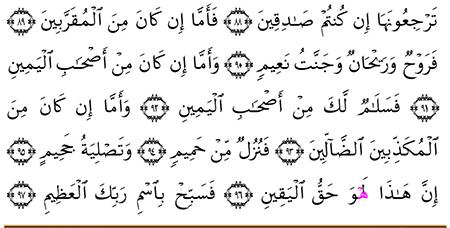 تَرْجِعُونَهَا إِن كُنتُمْ صَـٰدِقِينَ ﴿٨٨﴾ فَأَمَّا إِن كَانَ مِنَ ٱلْمُقَرَّبِينَ ﴿٨٩﴾
فَرَوْحٌ وَرَيْحَانٌ وَجَنَّتُ نَعِيمٍ ﴿٩٠﴾ وَأَمَّا إِن كَانَ مِنْ أَصْحَـٰبِ ٱلْيَمِينِ
﴿٩١﴾ فَسَلَـٰمٌ لَّكَ مِنْ أَصْحَـٰبِ ٱلْيَمِينِ ﴿٩٢﴾ وَأَمَّا إِن كَانَ مِنَ
ٱلْمُكَذِّبِينَ ٱلضَّآلِّينَ ﴿٩٣﴾ فَنُزُلٌ مِّنْ حَمِيمٍ ﴿٩٤﴾ وَتَصْلِيَةُ جَحِيمٍ ﴿٩٥﴾
إِنَّ هَـٰذَا لَهْوَ حَقُّ ٱلْيَقِينِ ﴿٩٦﴾ فَسَبِّحْ بِٱسْمِ رَبِّكَ ٱلْعَظِيمِ ﴿٩٧﴾